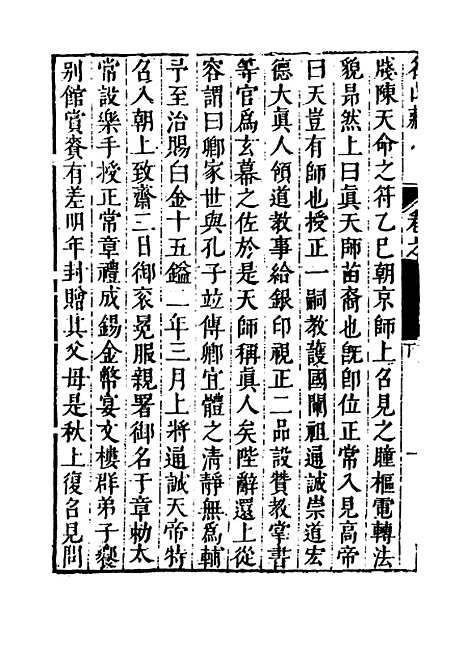 牋陳天命之符乙巳朝京師上召見之瞳樞電轉法
貌昻然上曰眞天師苗裔也旣卽位正常入見高帝
曰天豈有師也授正一嗣教護國闡祖通誠崇道宏
德大眞人領道教事給銀印視正二品設贊教掌書
等官爲玄幕之佐於是天師稱眞人矣陛辭還上從
容謂曰卿家世與孔子並傳卿宜體之清靜無爲輔
予至治賜白金十五鎰二年三月上將通誠天帝特
召入朝上致齋三日御袞冕服親署御名于章勑太
常設樂手授正常章禮成錫金幣宴文樓群弟子饗
别館賞賚有差明年封贈其父母是秋上復召見問